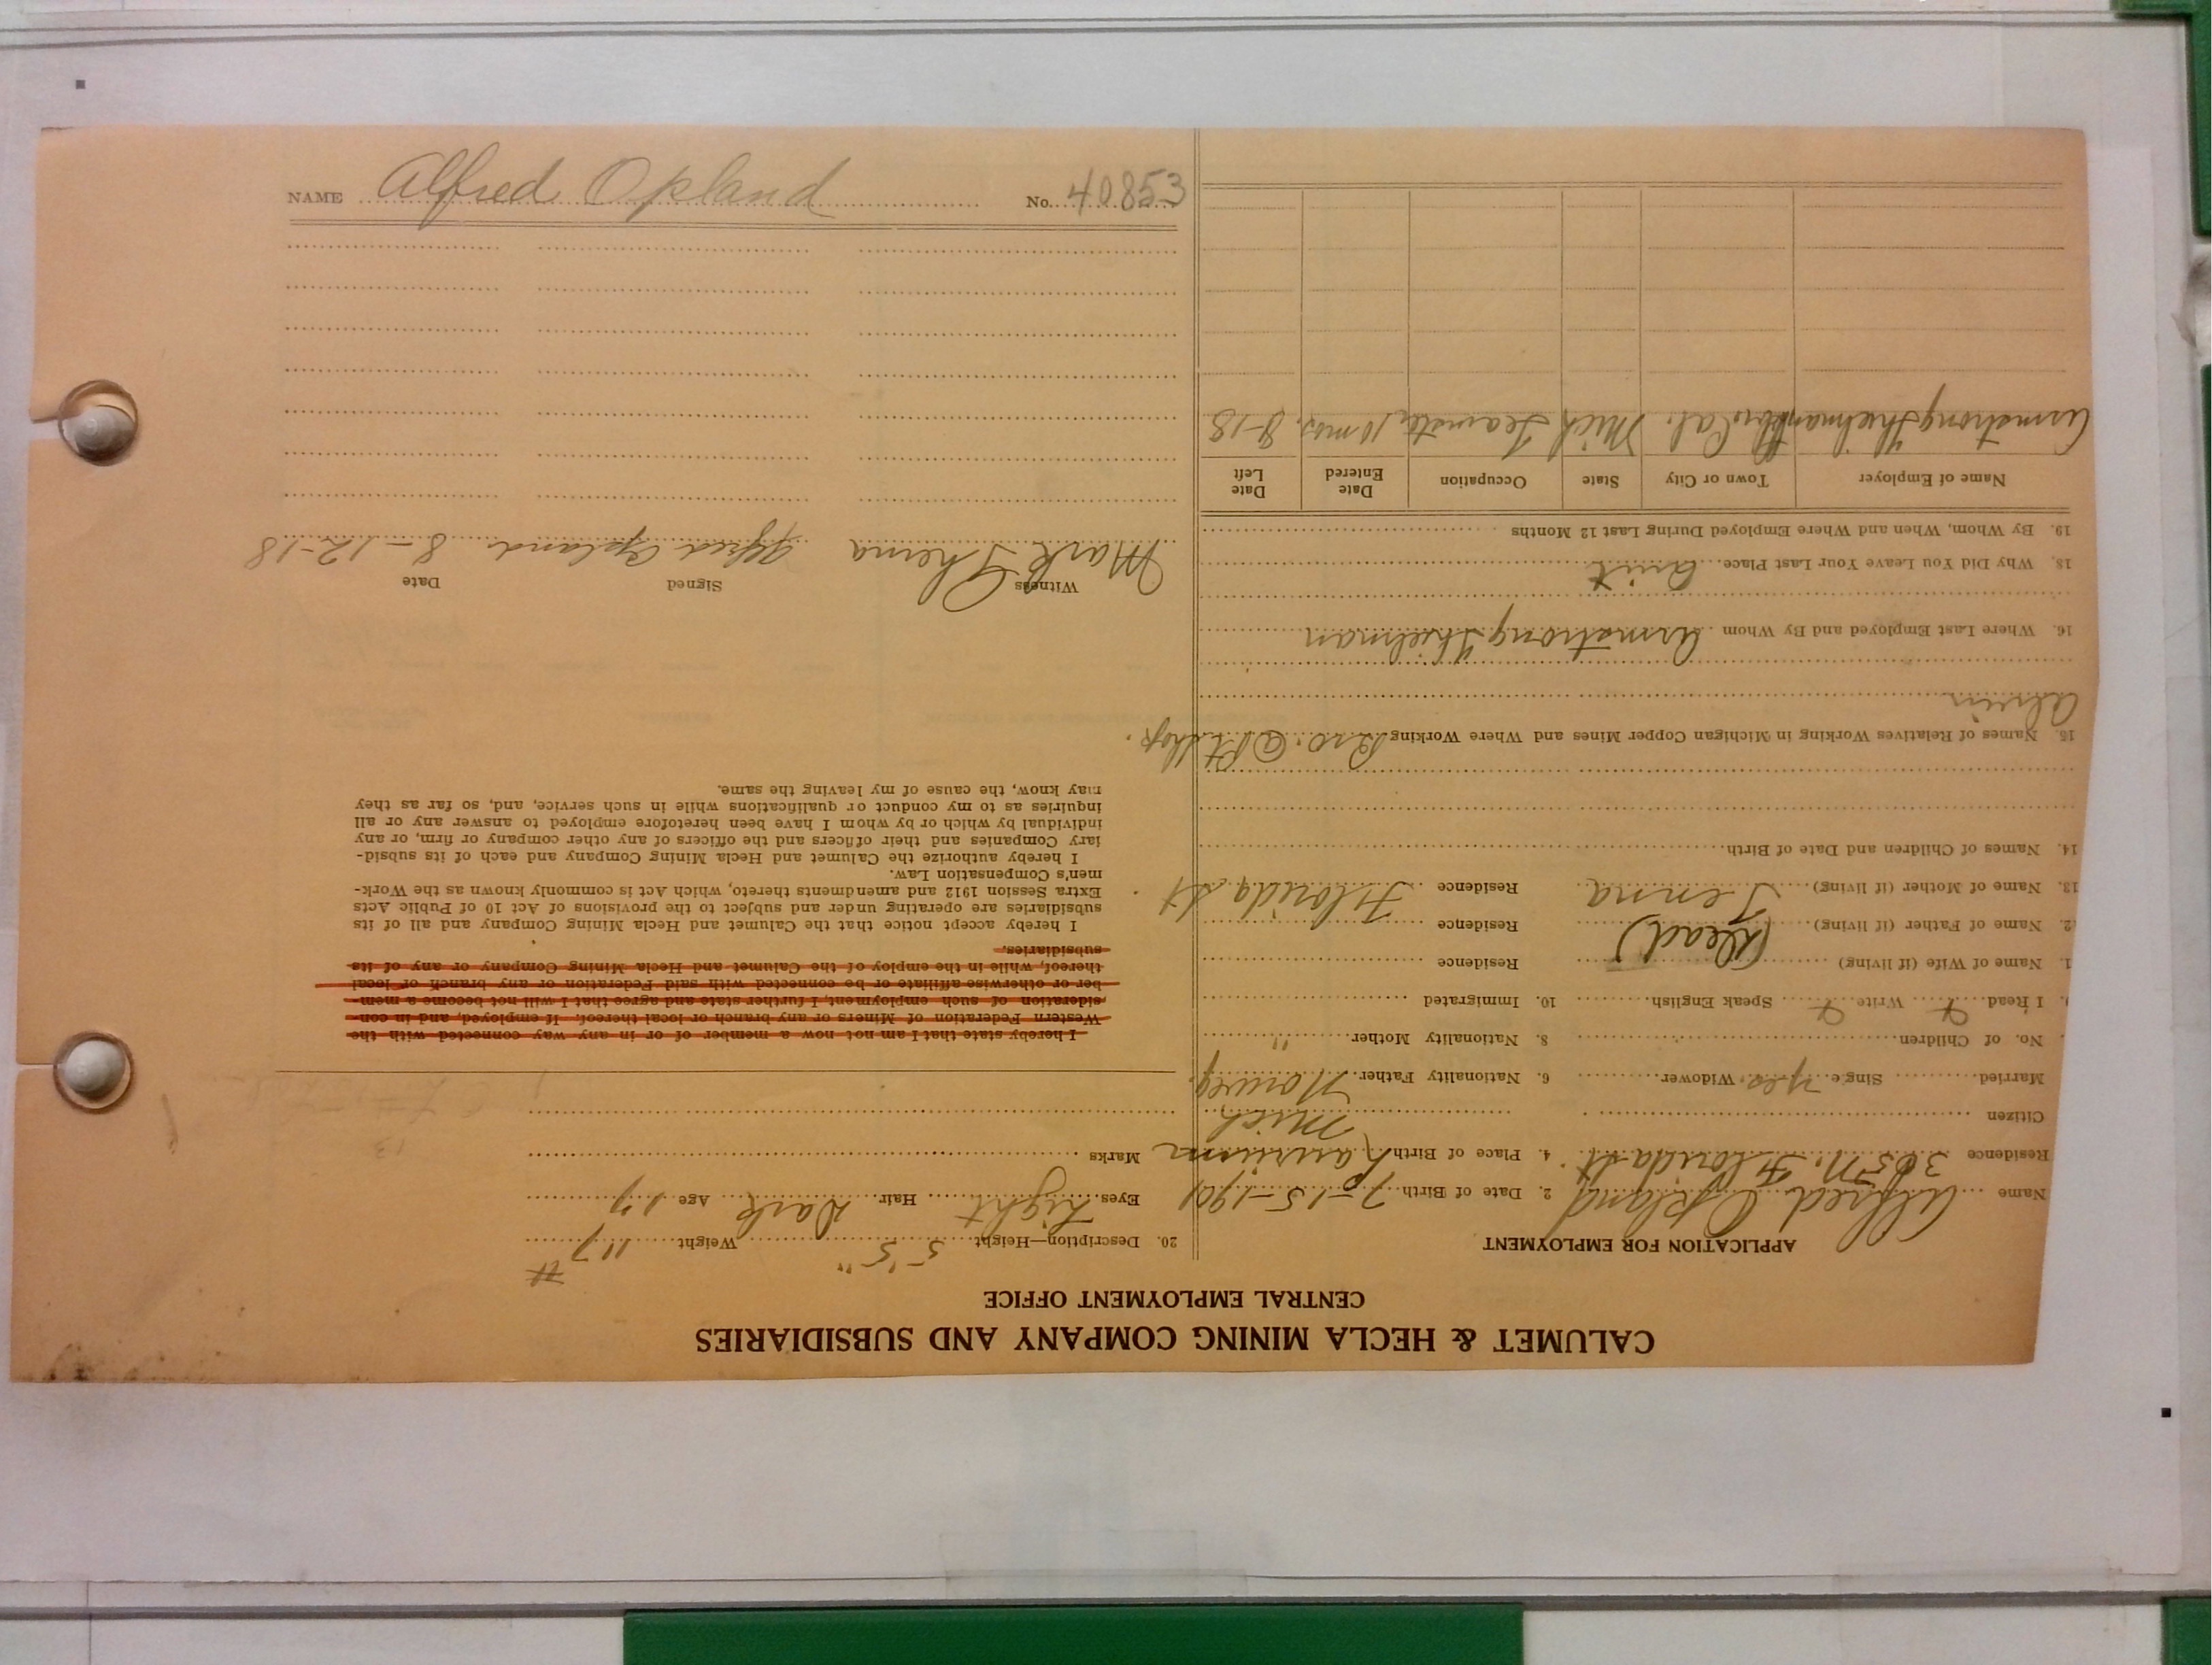 CALUMET & HECLA MINING COMPANY AND SUBSIDIARIES
CENTRAL EMPLOYMENT OFFICE
APPLICATION FOR EMPLOYMENT
Name Alfred Opland 2. Date of Birth 7-15-1901
Residence 305 N. Florida St. 4. Place of Birth Laurium
Mich
Citizen
Married Single yes. Widower 6. Nationality Father Norweg.
No. of Children 8. Nationality Mother "
I Read Write Speak English 10. Immigrated
1. Name of Wife (if living) Residence
2. Name of Father (if living) (Dead) Residence
13. Name of Mother (if living) Jenna Residence Florida St
14. Names of Children and Date of Birth
15. Names of Relatives Working in Michigan Copper Mines and Where Working Bro. @ Pt shop.
Alvin
16. Where Last Employed and By Whom Armstrong Thielman
18. Why Did You Leave Your Last Place quit
19. By Whom, When and Where Employed During Last 12 Months
Name of Employer Town or City State Occupation Date Entered Date Left
Armstrong Thielman Cal. Mich Teamster 10 mos. 8-18
20. Description—Height 5'5" Weight 117 #
Eyes Light Hair Dark Age 17
Marks
I hereby state that I am not now a member of or in any way connected with the
Western Federation of Miners or any branch or local thereof. If employed, and in con-
sideration of such employment, I further state and agree that I will not become a mem-
ber or otherwise affiliate or be connected with said Federation or any branch or local
thereof, while in the employ of the Calumet and Hecla Mining Company or any of its
subsidiaries.
I hereby accept notice that the Calumet and Hecla Mining Company and all of its
subsidiaries are operating under and subject to the provisions of Act 10 of Public Acts
Extra Session 1912 and amendments thereto, which Act is commonly known as the Work-
men's Compensation Law.
I hereby authorize the Calumet and Hecla Mining Company and each of its subsid-
iary Companies and their officers and the officers of any other company or firm, or any
individual by which or by whom I have been heretofore employed to answer any or all
inquiries as to my conduct or qualifications while in such service, and, so far as they
may know, the cause of my leaving the same.
Witness Signed Date
Mark Alfred Opland 8-12-18
NAME Alfred Opland No. 40853